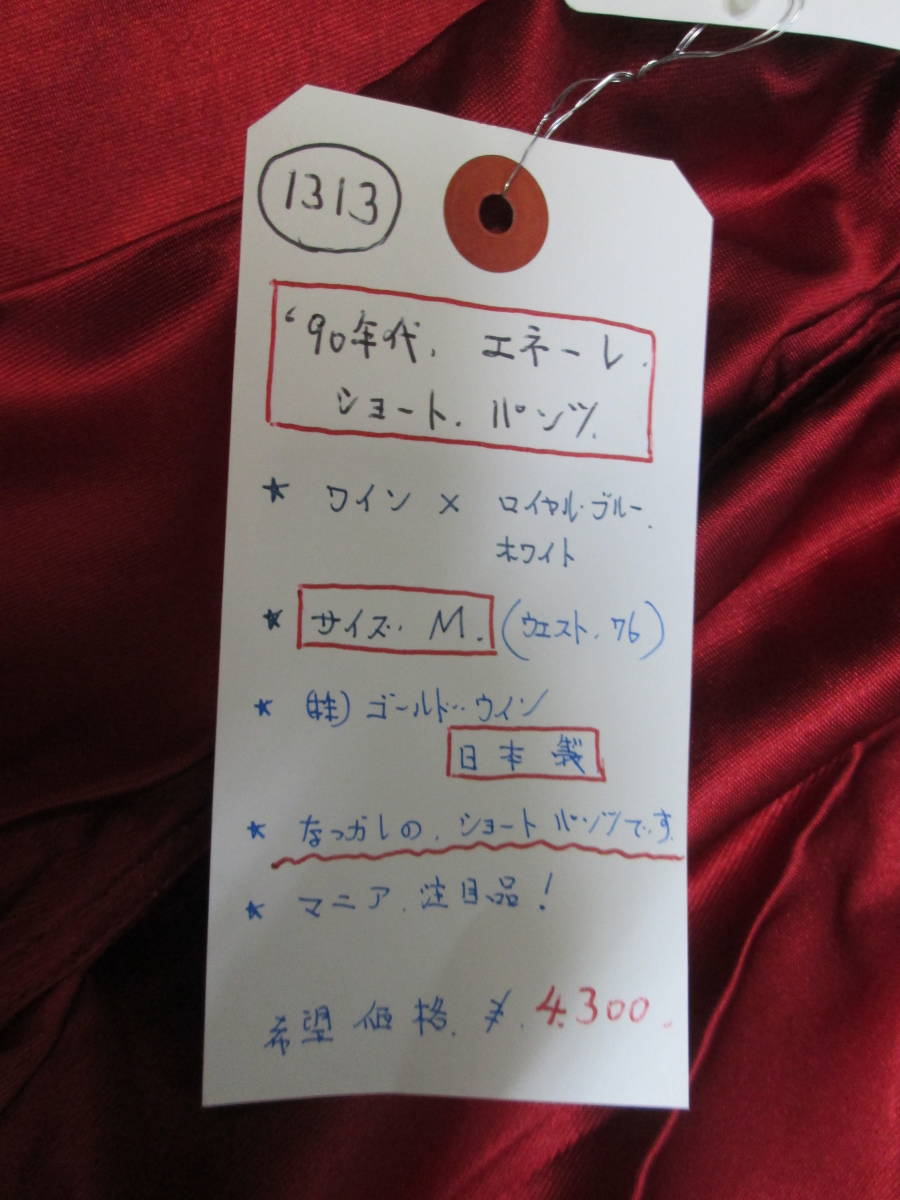 1313
'90年代. エネーレ.
ショート. パンツ.
★ ワイン × ロイヤル・ブルー.
ホワイト
★ サイズ. M. (ウエスト. 76)
★ (株) ゴールド・ウイン
日本製
★ なつかしの. ショートパンツです.
★ マニア. 注目品!
希望価格. ¥. 4.300.